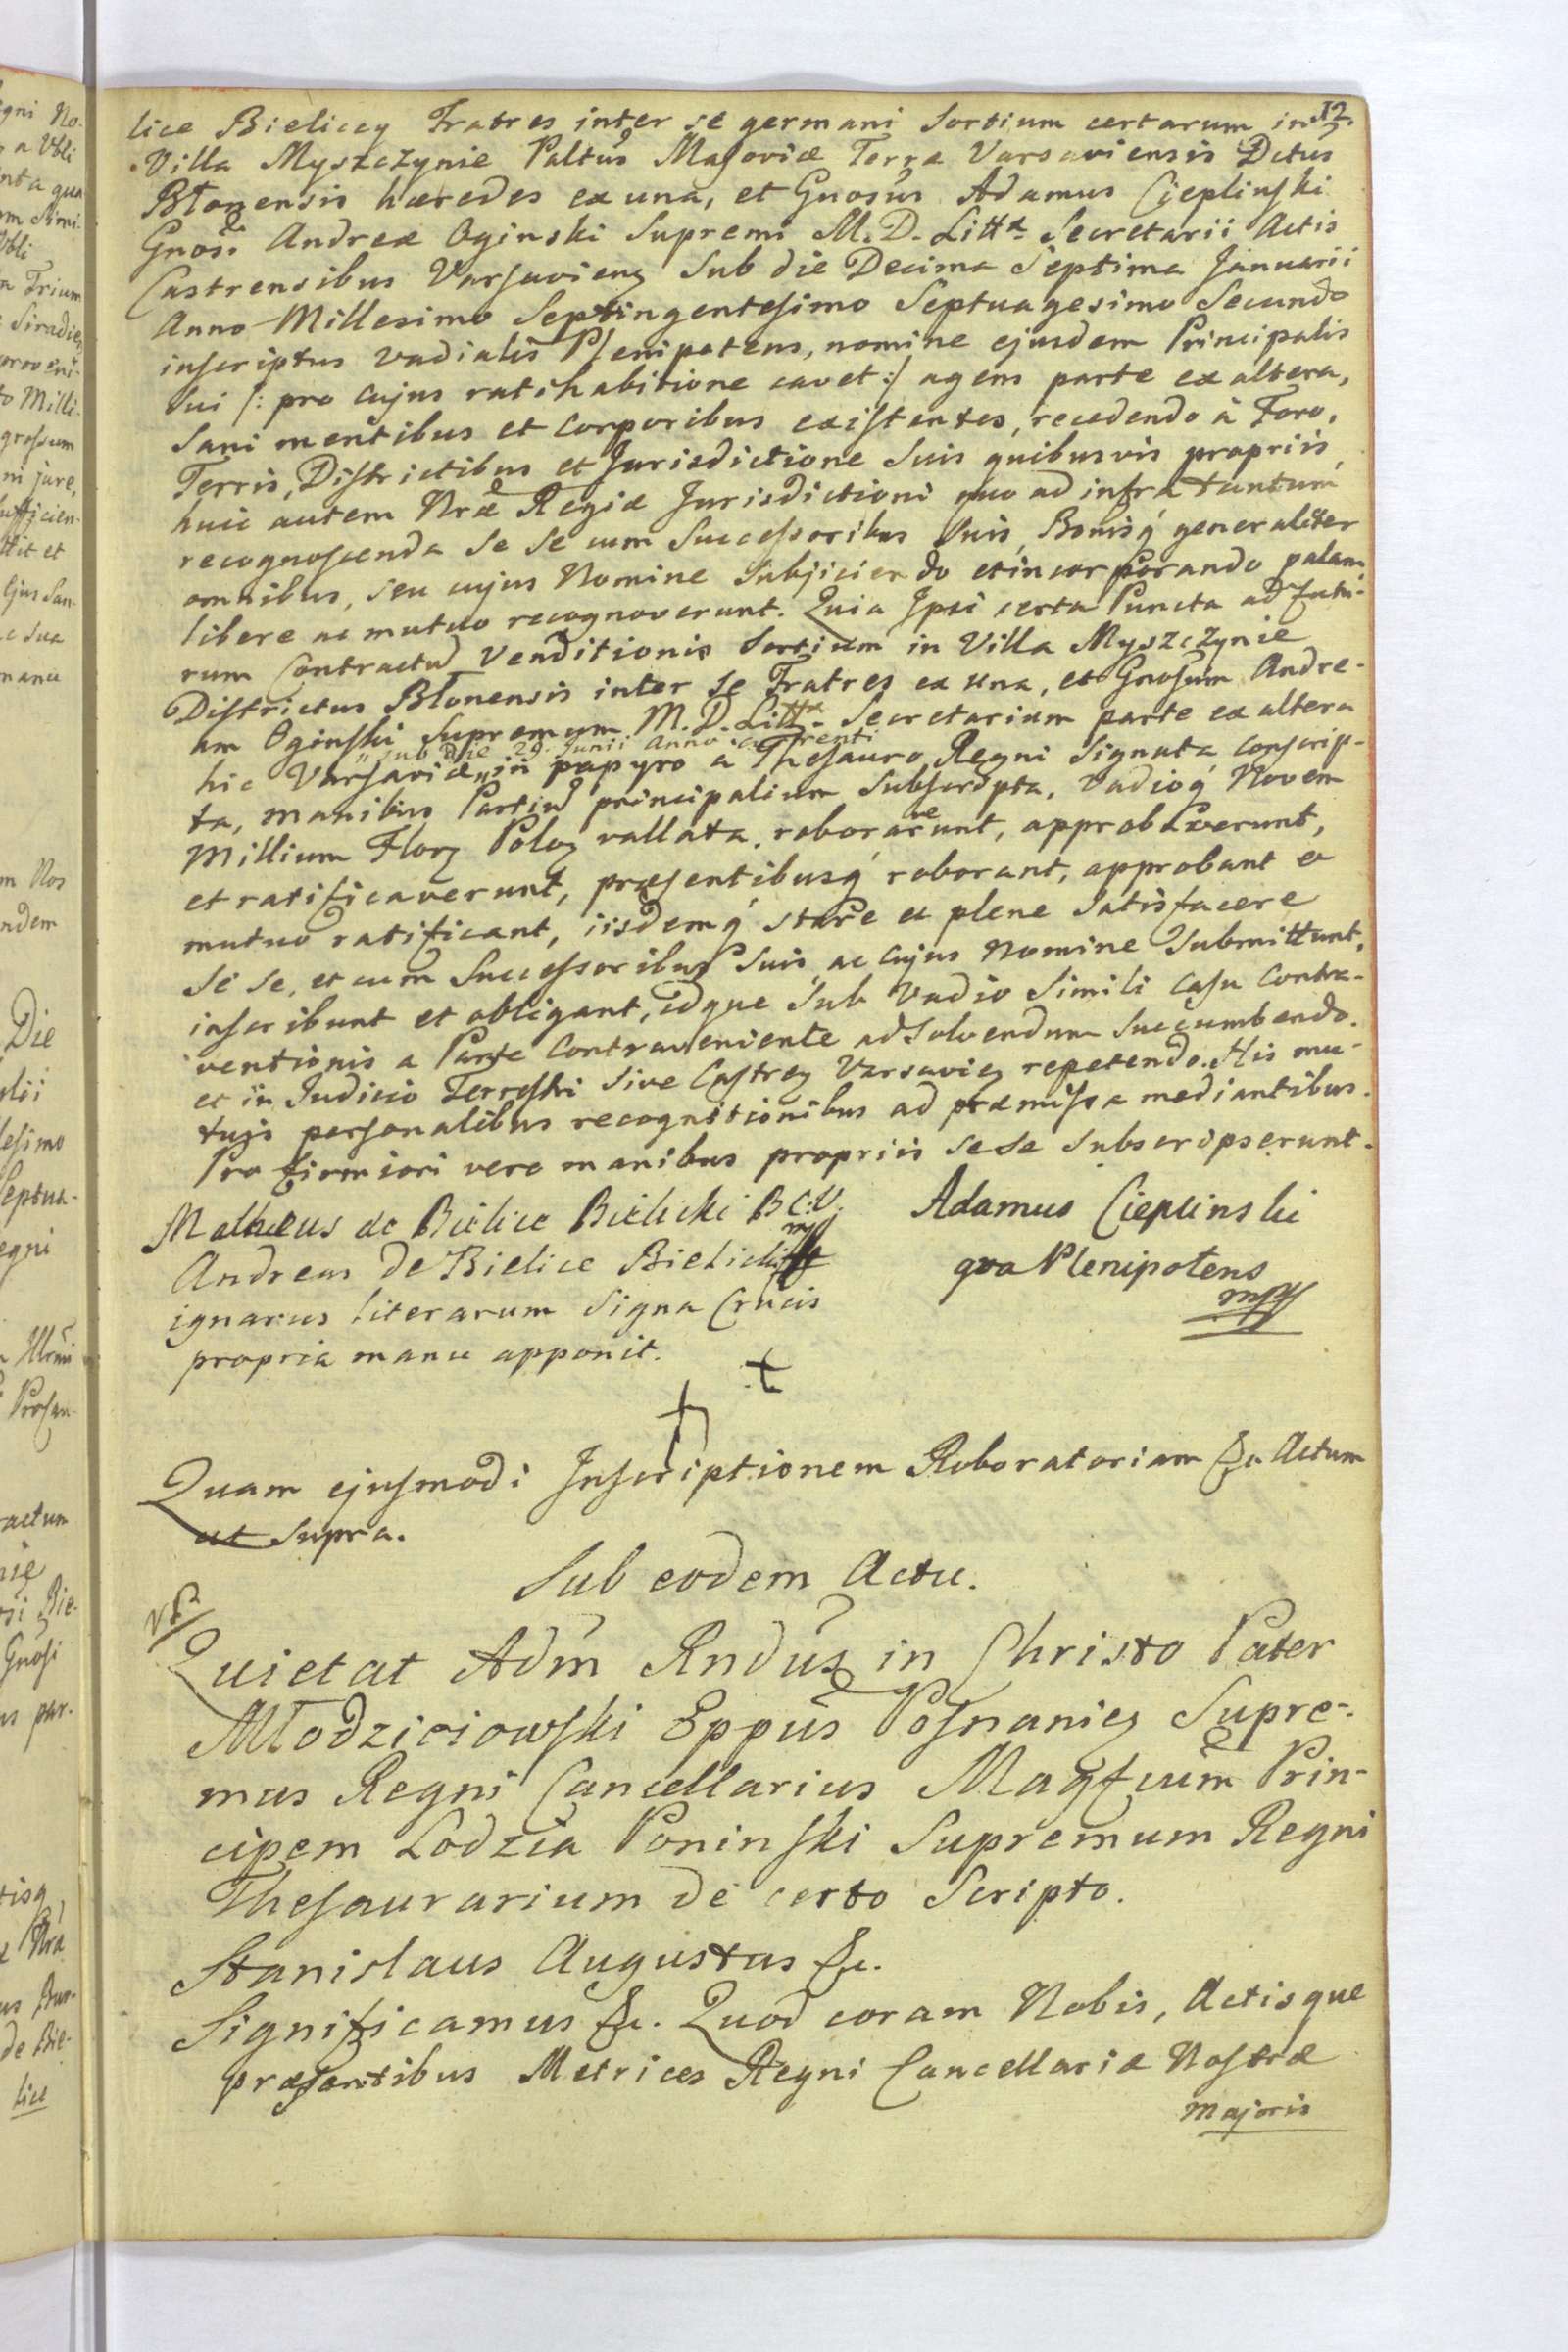 12.
lice Bielicey Fratres inter se germani Sortium certarum in
Villa Myszczynie Paltūs Masoviæ Terræ Varsaviensis Dctūs
Błonensis hæredes ex una, et Gnosūs Adamus Cieplinski
Gnosī Andreæ Oginski Supremi M. D. Littæ Secretarii Actis
Castrensibus Varsavien̄ Sub die Decima Septima Januarii
Anno Millesimo Septingentesimo Septuagesimo Secundo
inscriptus vadialis Plenipotens, nomine ejusdem Principalis
Sui /: pro cujus ratihabitione cavet :/ agens parte ex altera,
Sani mentibus et Corporibus existentes, recedendo à Foro,
Terris, Districtibus et Jurisdictione Suis quibusvis propriis,
huic autem Nr̄æ Regiæ Jurisdictioni quo ad infra tantum
recognoscenda Se Se cum Successoribus Suis, Bonisq́ generaliter
omnibus, seu cujus Nomine Subjiciendo et incorporando palam
libere ac mutuo recognoverunt. Quia Ipsi certa Puncta ad futu-
rum Contractū Venditionis Sortium in Villa Myszczynie
Districtus Błonensis inter se Fratres ex una, et Gnosum Andre-
am Oginski Supremum M. D. Littæ Secretarium parte ex altera
" Sub Die 29. Junii Anno currenti
hic Varsaviæ " in papyro a Thesauro Regni Signata conscrip-
ta, manibus Partiū principalium Subscripta, Vadioq́ Novem
Millium Floren̄ Polon̄ vallata, roborarunt, approbaverunt,
et ratificaverunt, præsentibusq́ roborant, approbant et
mutuo ratificant, iisdemq́ stare et plene Satisfacere
Se se, et cum Successoribus Suis, ac cujus Nomine Submittunt,
inscribunt et obligant, idque Sub Vadio Simili casu Contra-
ventionis a Parte Contraveniente ad Solvendum Succumbendo.
et in Judicio Terrestri Sive Castren̄ Varsavien̄ repetendo. His mu-
tuis personalibus recognitionibus ad præmissa mediantibus.
Pro firmiori vero manibus propriis Sese Subscripserunt.
Matheus de Bielice Bielicki B C: V. mp
Andreas de Bielice Bielicki
ignarus literarum Signa Crucis
propria manu apponit.
Adamus Cieplinski
qva Plenipotens
mp
Quam ejusmodi Inscriptionem Roboratoriam &c. Actum
ut Supra.
Sub eodem Actu.
Quietat Adm̄ Rndūs in Christo Pater
Młodzieiowski Eppūs Posnanien̄ Supre-
mus Regni Cancellarius Magfcum̄ Prin-
cipem Lodzia Poninski Supremum Regni
Thesaurarium de certo Scripto.
Stanislaus Augustus &c.
Significamus &c. Quod coram Nobis, Actisque
præsentibus Metrices Regni Cancellariæ Nostræ
Majoris